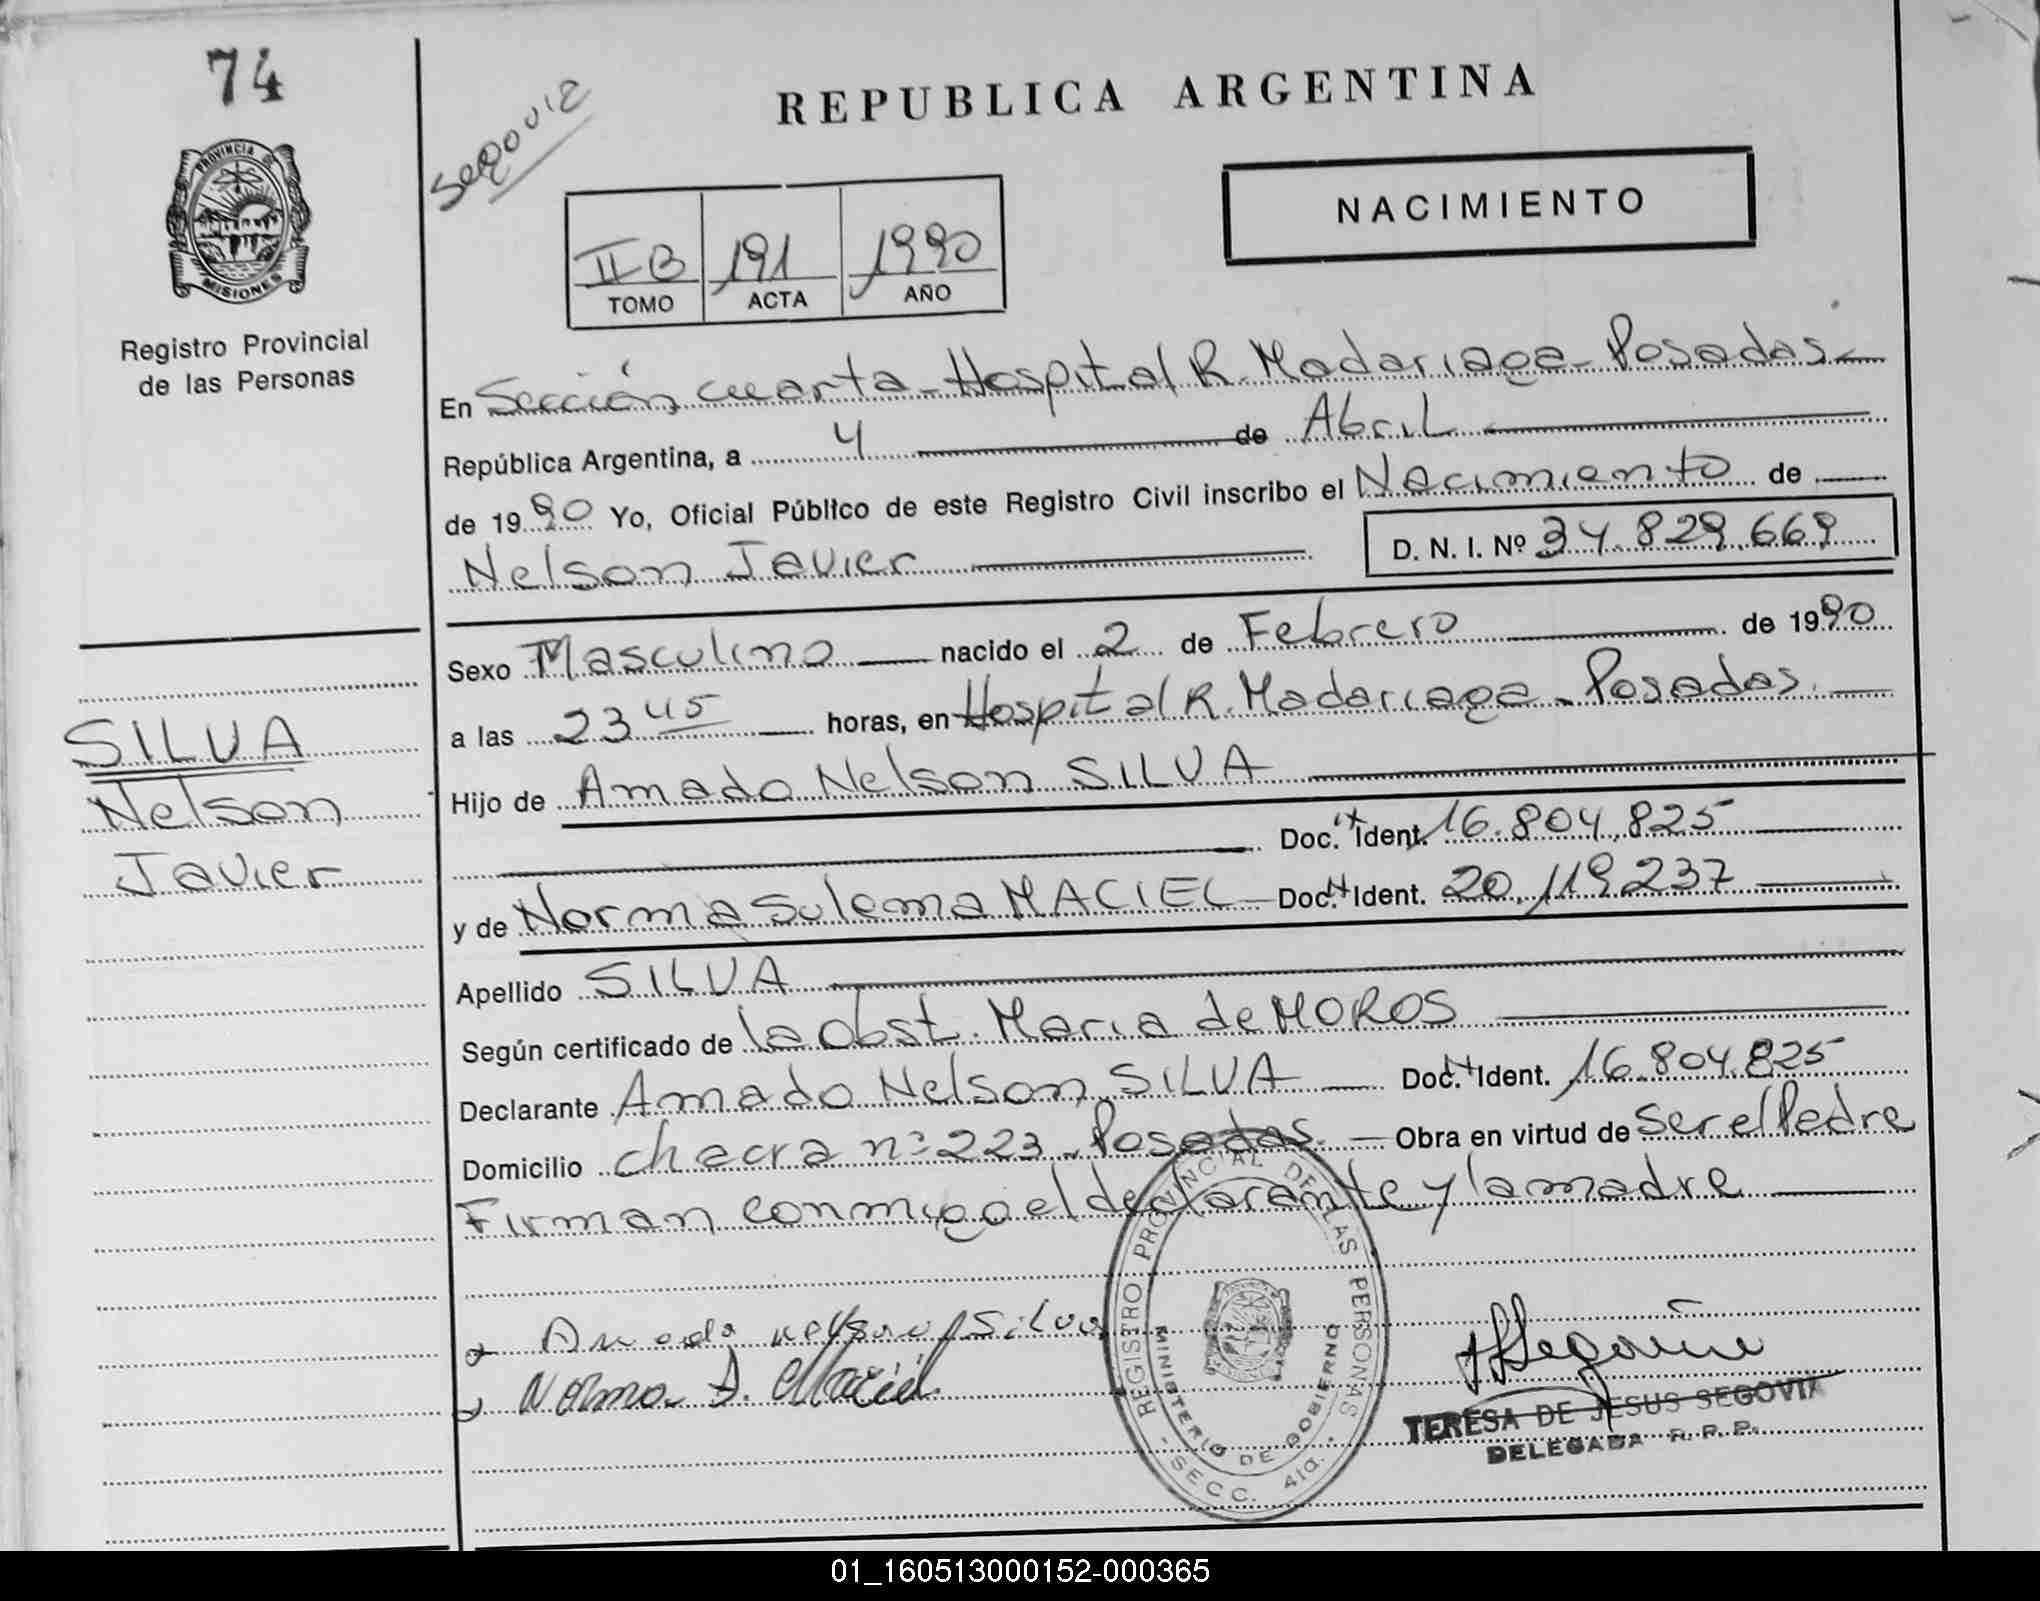 74
PROVINCIA DE
MISIONES
Registro Provincial
de las Personas
SILVA
Nelson
Javier
Segovia
REPUBLICA ARGENTINA
NACIMIENTO
II B 191 1990
TOMO ACTA AÑO
En Sección cuarta - Hospital R. Madariaga - Posadas -
República Argentina, a 4 de Abril
de 1990 Yo, Oficial Público de este Registro Civil inscribo el Nacimiento de
Nelson Javier D. N. I. Nº 34.829.669
Sexo Masculino nacido el 2 de Febrero de 1990
a las 23 45 horas, en Hospital R. Madariaga - Posadas.
Hijo de Amado Nelson SILVA
Doc. Ident. 16.804.825
y de Norma Sulema MACIEL - Doc. Ident. 20.119.237
Apellido SILVA
Según certificado de la Obst. Maria de MOROS
Declarante Amado Nelson SILVA Doc. Ident. 16.804.825
Domicilio chacra nº 223 - Posadas. - Obra en virtud de ser el Padre
Firman conmigo el declarante y la madre
Amado Nelson Silva
Norma S. Maciel
REGISTRO PROVINCIAL DE LAS PERSONAS
MINISTERIO DE GOBIERNO
- SECC. 4ta. -
TERESA DE JESUS SEGOVIA
DELEGADA R. P. P.
01_160513000152-000365